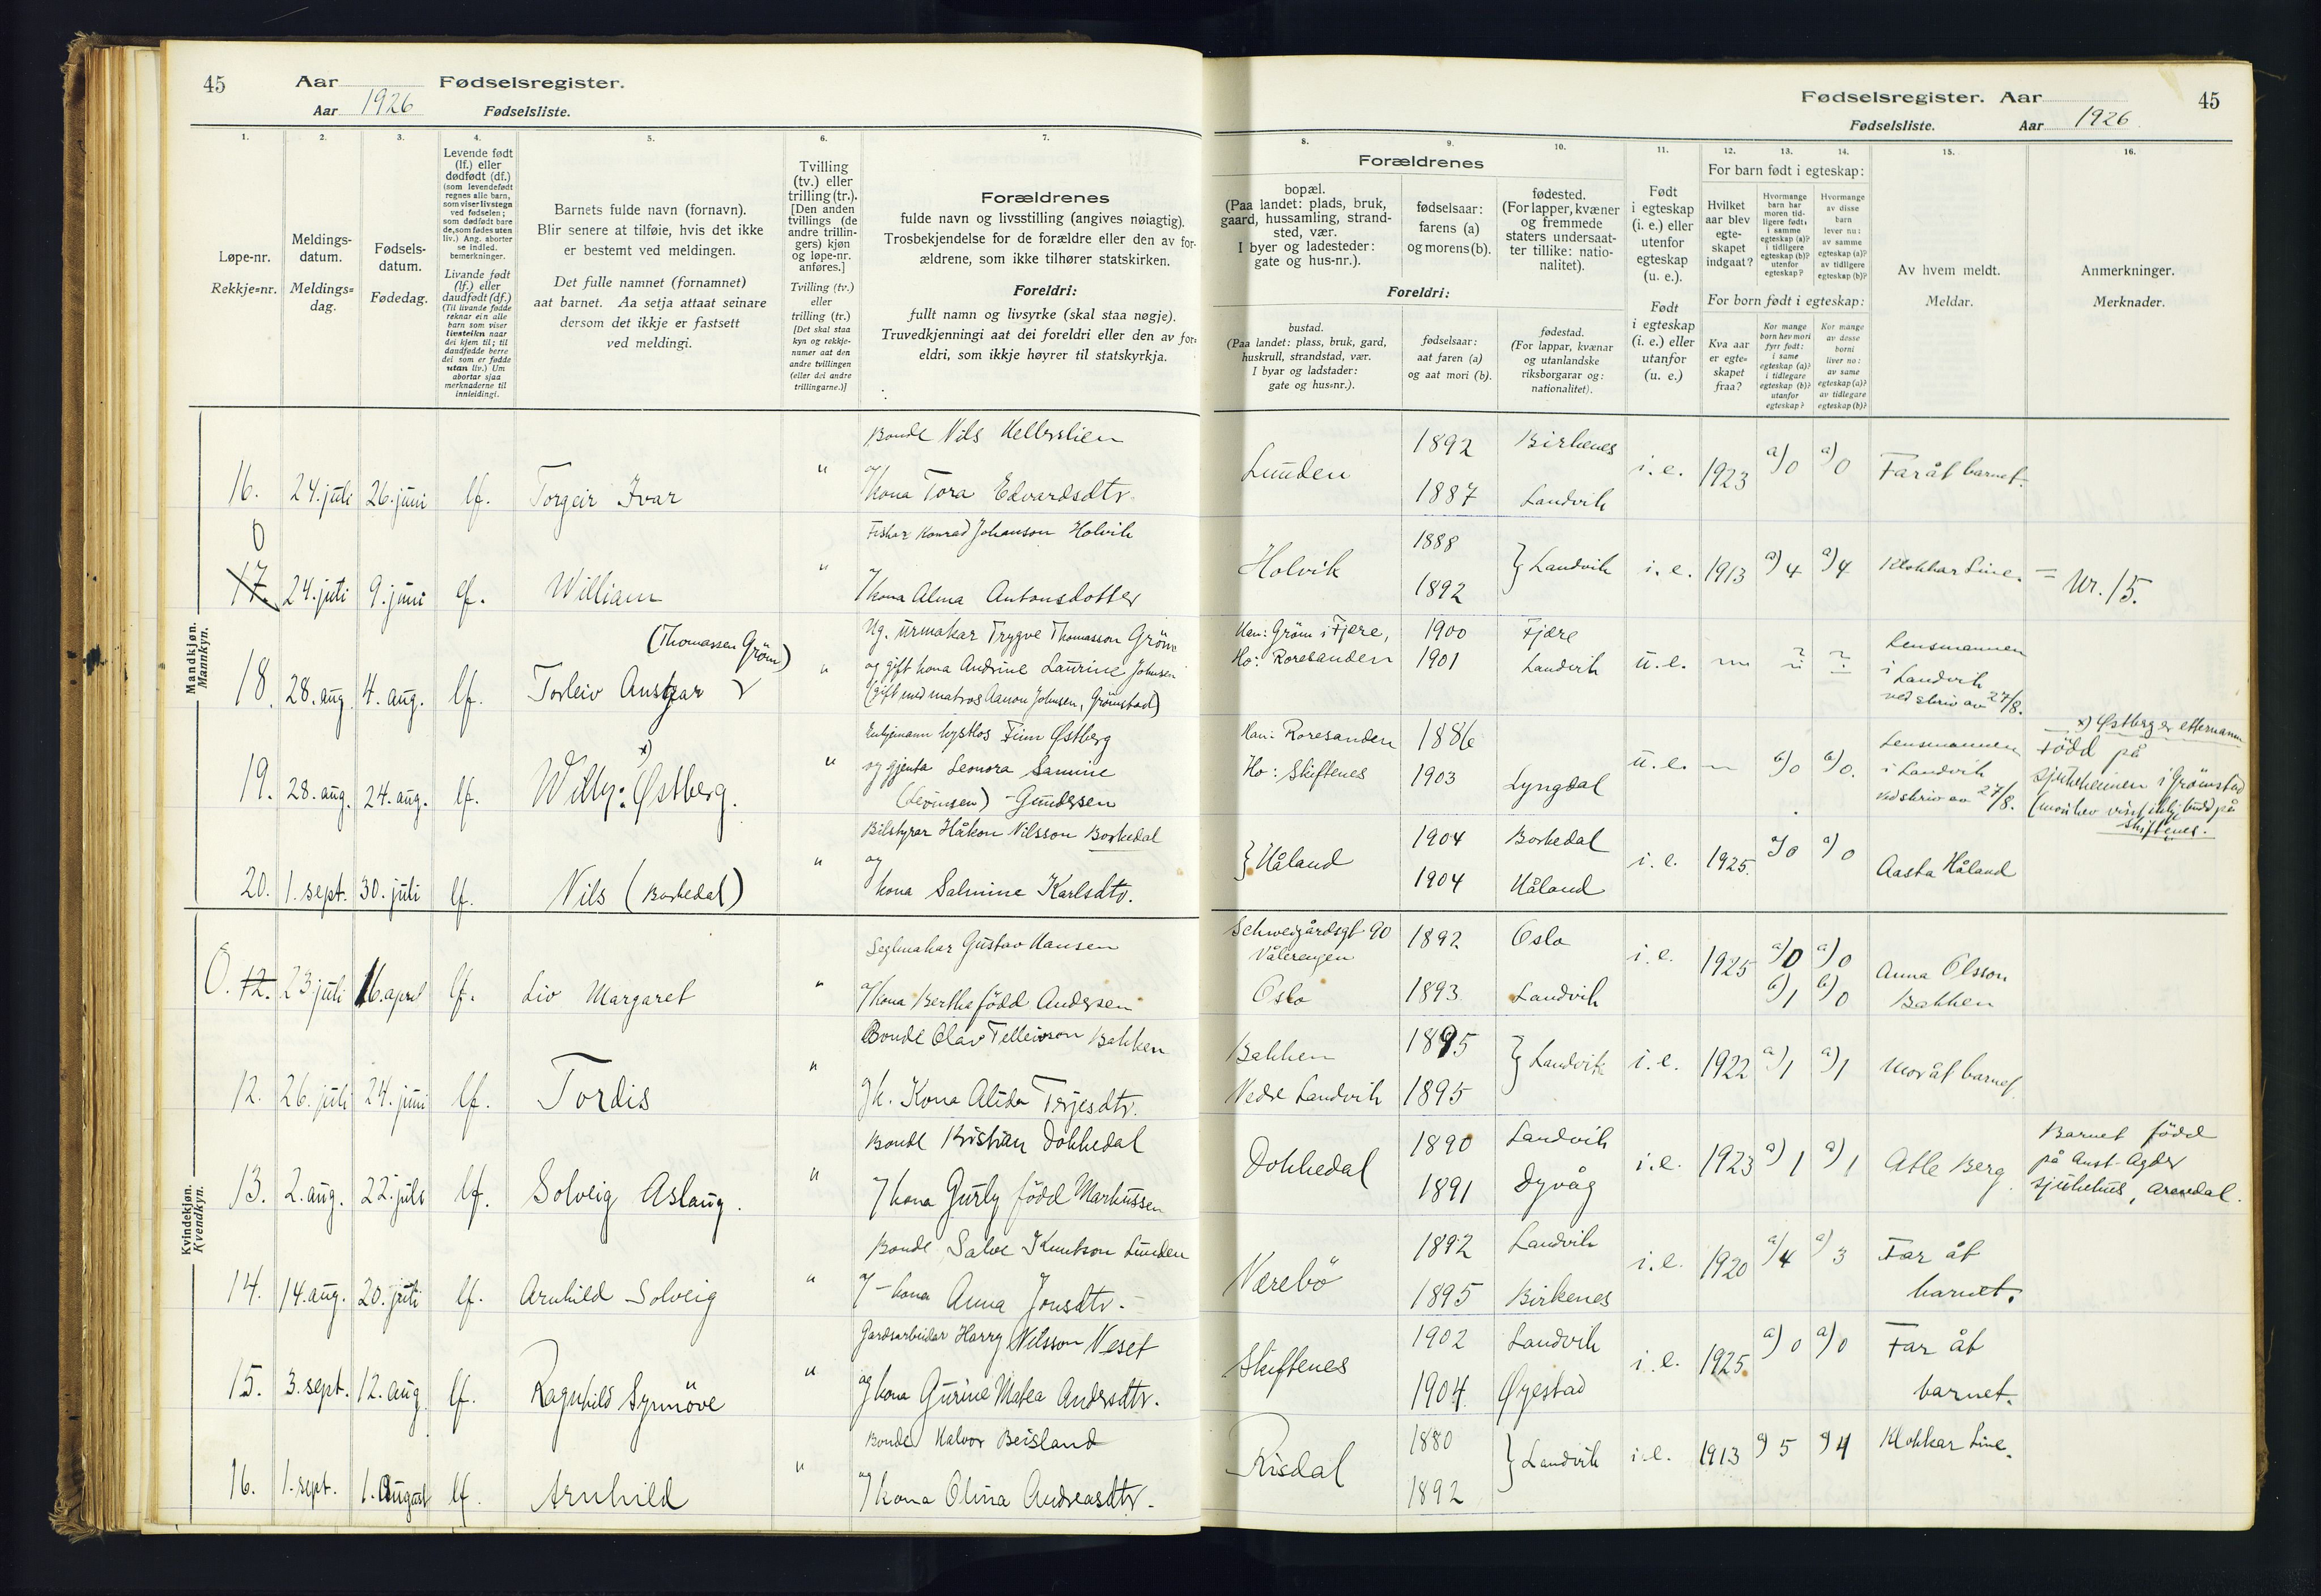 45 Aar Fødselsregister.
Aar 1926 Fødselsliste.
Fødselsregister. Aar 45
Fødselsliste. Aar 1926.
1. 2. 3. 4. 5. 6. 7.
Løpe-nr.
Rekkje=nr.
Meldings-
datum.
Meldings=
dag.
Fødsels-
datum.
Fødedag.
Levende født
(lf.) eller
dødfødt (df.)
(som levendefødt
regnes alle barn,
som viser livstegn
ved fødselen;
som dødfødt bare
de, som fødes uten
liv.) Ang. aborter
se indled.
bemerkninger.
Livande født
(lf.) eller
daudfødt (df.)
(Til livande fødde
reknar ein alle
barn som viser
livsteikn naar
dei kjem til; til
daudfødde berre
dei som er fødde
utan liv.) Um
abortar sjaa
merknaderne til
innleidingi.
Barnets fulde navn (fornavn).
Blir senere at tilføie, hvis det ikke
er bestemt ved meldingen.
Det fulle namnet (fornamnet)
aat barnet. Aa setja attaat seinare
dersom det ikkje er fastsett
ved meldingi.
Tvilling
(tv.) eller
trilling (tr.).
[Den anden
tvillings (de
andre trillin-
gers) kjøn
og løpe-nr.
anføres.]
Tvilling (tv.)
eller
trilling (tr.)
[Det skal staa
kyn og rekkje-
numer aat den
andre tvillingen
(eller dei andre
trillingarne.)]
Forældrenes
fulde navn og livsstilling (angives nøiagtig).
Trosbekjendelse for de forældre eller den av for-
ældrene, som ikke tilhører statskirken.
Foreldri:
fullt namn og livsyrke (skal staa nøgje).
Truvedkjenningi aat dei foreldri eller den av for=
eldri, som ikkje høyrer til statskyrkja.
8. 9. 10. 11. 12. 13. 14. 15. 16.
Forældrenes
bopæl.
(Paa landet: plads, bruk,
gaard, hussamling, strand-
sted, vær.
I byer og ladesteder:
gate og hus-nr.).
fødselsaar:
farens (a)
og morens (b).
fødested.
(For lapper, kvæner
og fremmede
staters undersaat-
ter tillike: natio-
nalitet).
Foreldri:
bustad.
(Paa landet: plass, bruk, gard,
huskrull, strandstad, vær.
I byar og ladstader:
gate og hus=nr.).
fødselsaar:
aat faren (a)
og aat mori (b).
fødestad.
(For lappar, kvænar
og utanlandske
riksborgarar og:
nationalitet).
Født
i egteskap
(i. e.) eller
utenfor
egteskap
(u. e.).
Født
i egteskap
(i. e.) eller
utanfor
(u. e.)
For barn født i egteskap:
Hvilket
aar blev
egte-
skapet
indgaat?
Hvormange
barn har
moren tid-
ligere født:
i samme
egteskap (a)?
i tidligere
egteskap (b)?
utenfor
egteskap?
Hvormange
av disse
barn
lever nu:
av samme
egteskap (a)?
av tidligere
egteskap (b)?
For born født i egteskap:
Kva aar
er egte=
skapet
fraa?
Kor mange
born hev mori
fyrr født:
i same
egteskap (a)?
i tidlegare
egteskap (b)?
utanfor
egteskap?
Kor mange
av desse
borni
liver no:
av same
egteskap (a)?
av tidlegare
egteskap (b)?
Av hvem meldt.
Meldar.
Anmerkninger.
Merknader.
Mandkjøn.
Mannkyn.
Bonde Nils
16. 24. juli 26. juni lf. Torgeir Ivar " og kona Tora Edvardsdtr.
Lunden 1892 Birkenes i. e. 1923 a) 0 a) 0 Far åt barnet.
1887 Landvik
0
Fiskar Konrad Johanson Holvik
17. 24. juli 9. juni lf. William " og kona Alma Antonsdotter
Holvik 1888 } Landvik i. e. 1913 a) 4 a) 4 Klokkar Line. = Nr. 15.
1892
(Thomassen Grøm)
Ug. urmakar Trygve Thomasson Grøm
18. 28. aug. 4. aug. lf. Torleiv Ansgar " og gift kona Andrine Laurine Johnsen
(gift med matros Aanon Johnsen, Grimstad)
Han: Grøm i Fjære, 1900 Fjære
Ho: Roresanden 1901 Landvik u. e. Lensmannen
i Landvik
ved skriv av 27/8.
Finn Østberg
19. 28. aug. 24. aug. lf. x) Willy: Østberg. " og gjenta Leonora Samine
(Levinsen) - Gundersen
Han: Roresanden 1886
Ho: Skiftenes 1903 Lyngdal u. e. — b) 0 b) 0. Lensmannen
i Landvik
ved skriv av 27/8.
x) Østberg er etternamn
Född på
sjukeheimen i Grimstad
(mori hev visst ikkje budd på
Skiftenes.
Bilstyrar Håkon Nilsson Borkedal
20. 1. sept. 30. juli lf. Nils (Borkedal) " og kona Salmine Karlsdtr.
} Håland 1904 Borkedal i. e. 1925. a) 0 a) 0 Aasta Håland
1904 Håland
Kvindekjøn.
Kvendkyn.
Seglmakar Gustav Hansen
0. 12. 23. juli 16. april lf. Liv Margaret " og kona Bertha född Andersen
Schweigårdsgt 90 1892 Oslo i. e. 1925 a) 0 a) 0 Anna Olsson
Vålerengen
Oslo 1893 Landvik b) 1 b) 0 Bakken
Bonde Olav Tellevson Bakken
12. 26. juli 24. juni lf. Tordis " og h. Kona Alida Terjesdtr.
Bakken 1895 } Landvik i. e. 1922 a) 1 a) 1 Mor åt barnet.
Nedre Landvik 1895
Bonde Kristian Dokkedal
13. 2. aug. 22. juli lf. Solveig Aslaug. " og kona Gurly född Markussen
Dokkedal 1890 Landvik i. e. 1923 a) 1 a) 1 Atle Berg.
1891 Dyvåg
Barnet född
på Aust-Agder
sjukehus, Arendal.
Bonde Salve Knutson Lunden
14. 14. aug. 20. juli lf. Arnhild Solveig " og kona Anna Jonsdtr.
Nærebö 1892 Landvik i. e. 1920 a) 4 a) 3 Far åt
1895 Birkenes barnet.
Gardsarbeidar Harry Nilsson Veset
15. 3. sept. 12. aug. lf. Ragnhild Synnöve " og kona Gurine Matea Andersdtr.
Skiftenes 1902 Landvik i. e. 1925. a) 0 a) 0 Far åt
1904 Øyestad barnet.
Bonde Halvor Beisland
16. 1. sept. 1. August lf. Arnhild " og kona Olina Andreasdtr.
Risdal 1880 } Landvik i. e. 1913 a) 5 a) 4 Klokkar Line.
1892